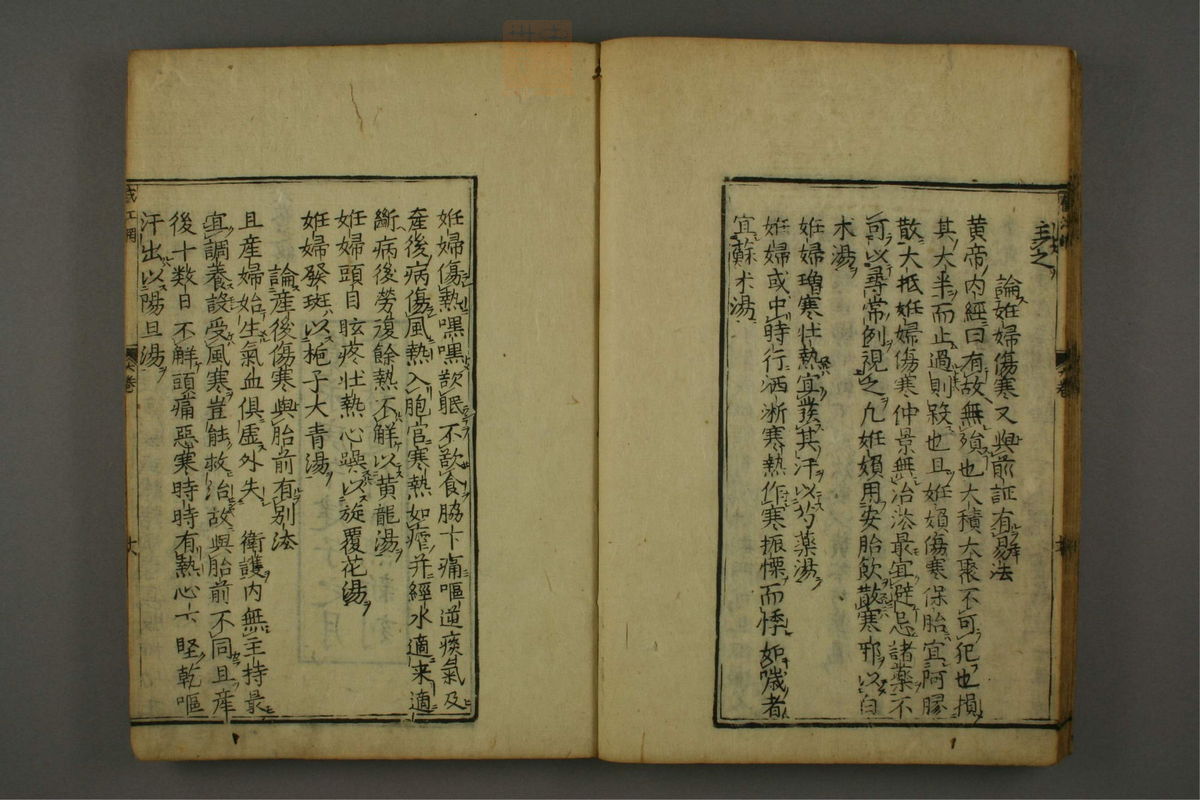 主之
論妊婦傷寒又與前証有易法
黄帝内經曰有故無殞也大積大聚不可犯也損
其大半而止過則殺也且妊婦傷寒保胎宜阿膠
散大抵妊婦傷寒仲景無治法最宜避忌諸藥不
可以尋常例視之凢妊婦用安胎飲散寒邪以白
术湯
妊婦増寒壮熱宜發其汗以芍薬湯
妊婦或中時行洒淅寒熱作寒振慄而悸如噦者
宜蘇木湯
妊婦傷熱嘿嘿欲眠不欲食脇下痛嘔逆痰氣及
産後病傷風熱入胞宫寒熱如瘧并經水適来適
断病後勞復餘熱不觧以黄龍湯
妊婦頭目眩疼壮熱心躁以旋覆花湯
妊婦發斑以梔子大青湯
論産後傷寒與胎前有别法
且産婦始生氣血俱虚外失 衛護内無主持最
宜調養設受風寒豈能救治故與胎前不同且産
後十数日不觧頭痛惡寒時時有熱心下堅乾嘔
汗出以陽旦湯